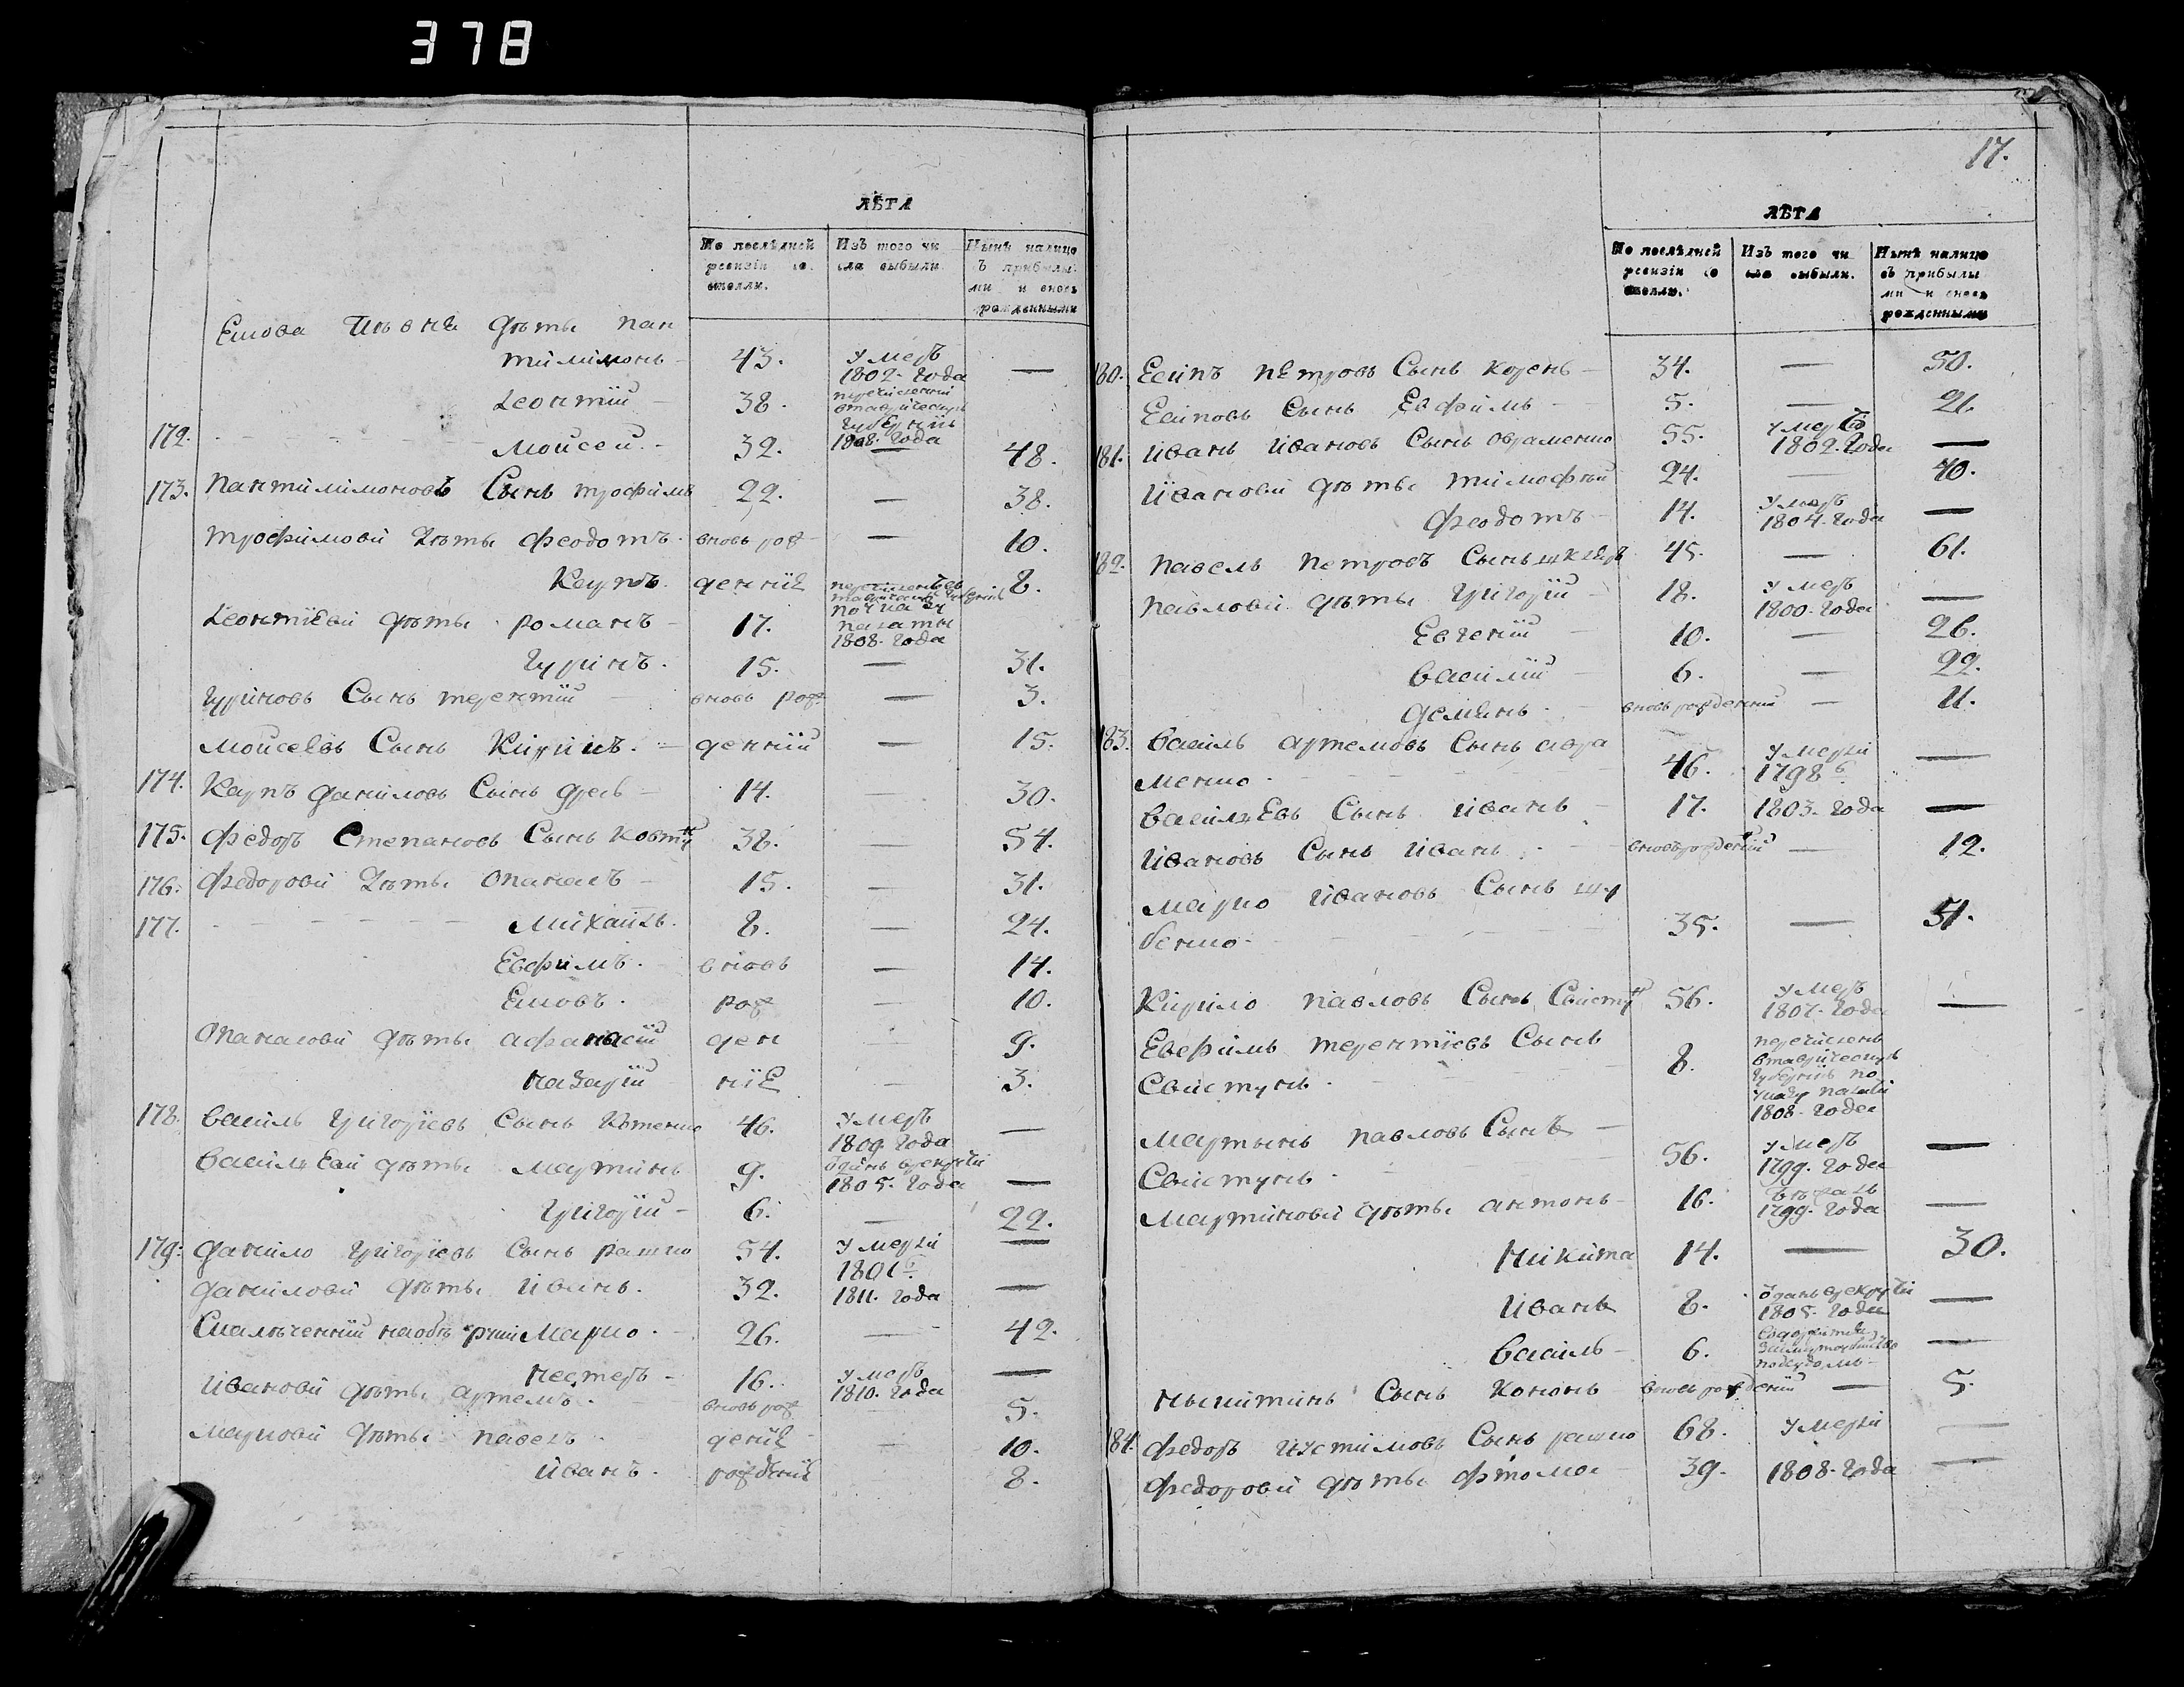 378
ЛѢТА
По послѣдней Изъ того чи Нынѣ налицо
ревизіи со сла выбыли. ъ прибылы
стояли. ми и вновь
рожденными
дѣти Пан
тилимонъ 43. умеръ 1802. года —
Леонтій 38. перечисленъ
губерніи
1808. года
172. Мойсей 32. — 48.
173. Пантилимоновъ Сынъ трофимъ 22. — 38.
трофимовы дѣти феодотъ вновь рож — 10.
Карпъ денніе 8.
Леонтіевы дѣти романъ 17. палаты
1808. года
Гуринъ 15. — 31.
Гуриновъ Сынъ терентій вновь рож — 3.
Мойсеевъ Сынъ Кирилъ денній — 15.
174. Карпъ даниловъ Сынъ 14. — 30.
175. федоръ Степановъ Сынъ Ковтун 38. — 54.
176. федоровы дѣти опанасъ 15. — 31.
177. Михаилъ 8. — 24.
Ефимъ вновь — 14.
рож — 10.
опанасовы дѣти афанасій ден — 9.
назарій ніе — 3.
178. василь григорієвъ Сынъ 46. умеръ
1809. года —
васильевы дѣти мартинъ 9. одинъ врекруты
1805. года —
григорій 6. — 22.
179. данило григорієвъ Сынъ рашко 54. умерли —
1801
даниловы дѣти иванъ 32. 1811. года —
Марко 26. — 42.
нестеръ 16. умеръ
1810. года —
ивановы дѣти артемъ вновь рож 5.
марковы дѣти павелъ деніе — 10.
иванъ рожденніе 8.
17.
ЛѢТА
По послѣдней Изъ того чи Нынѣ налицо
ревизіи со сла выбыли. съ прибылы
стояли. ми и вновь
рожденными
180. Есипъ петровъ Сынъ корень 34. — 50.
Есиповъ Сынъ Евфимъ 5. — 21.
181. иванъ ивановъ Сынъ овраменко 55. умеръ
1802. года —
ивановы дѣти тимофѣй 24. — 40.
феодотъ 14. умеръ
1804. года —
182. павелъ петровъ Сынъ 45. — 61.
павловы дѣти григорій 18. умеръ
1800. года —
Евгеній 10. — 26.
василій 6. — 22.
деменъ вновь рожденній — 11.
183. василь артемовъ Сынъ авра
менко 46. умерли
1798 —
васильевъ Сынъ иванъ 17. 1803. года —
ивановъ Сынъ иванъ вновь рожденій — 12.
марко ивановъ Сынъ шу
бенко 35. — 51.
Кирило павловъ Сынъ Свистун 56. умеръ
1807. года —
Евфимъ терентіевъ Сынъ
Свистунъ 8. перечисленъ
втаврическую
губернію по
указу палаты
1808. года
мартынъ павловъ Сынъ
Свистунъ 56. умеръ
1799. года —
мартиновы дѣти антонъ 16. бѣжалъ
1799. года —
никита 14. — 30.
иванъ 8. оданъ врекруты
1805. года —
василь 6. —
никитинъ Сынъ кононъ вновь рожденій — 5.
184. федоръ иустимовъ Сынъ рашко 68. умерли —
федоровы дѣти фтома 39. 1808. года —